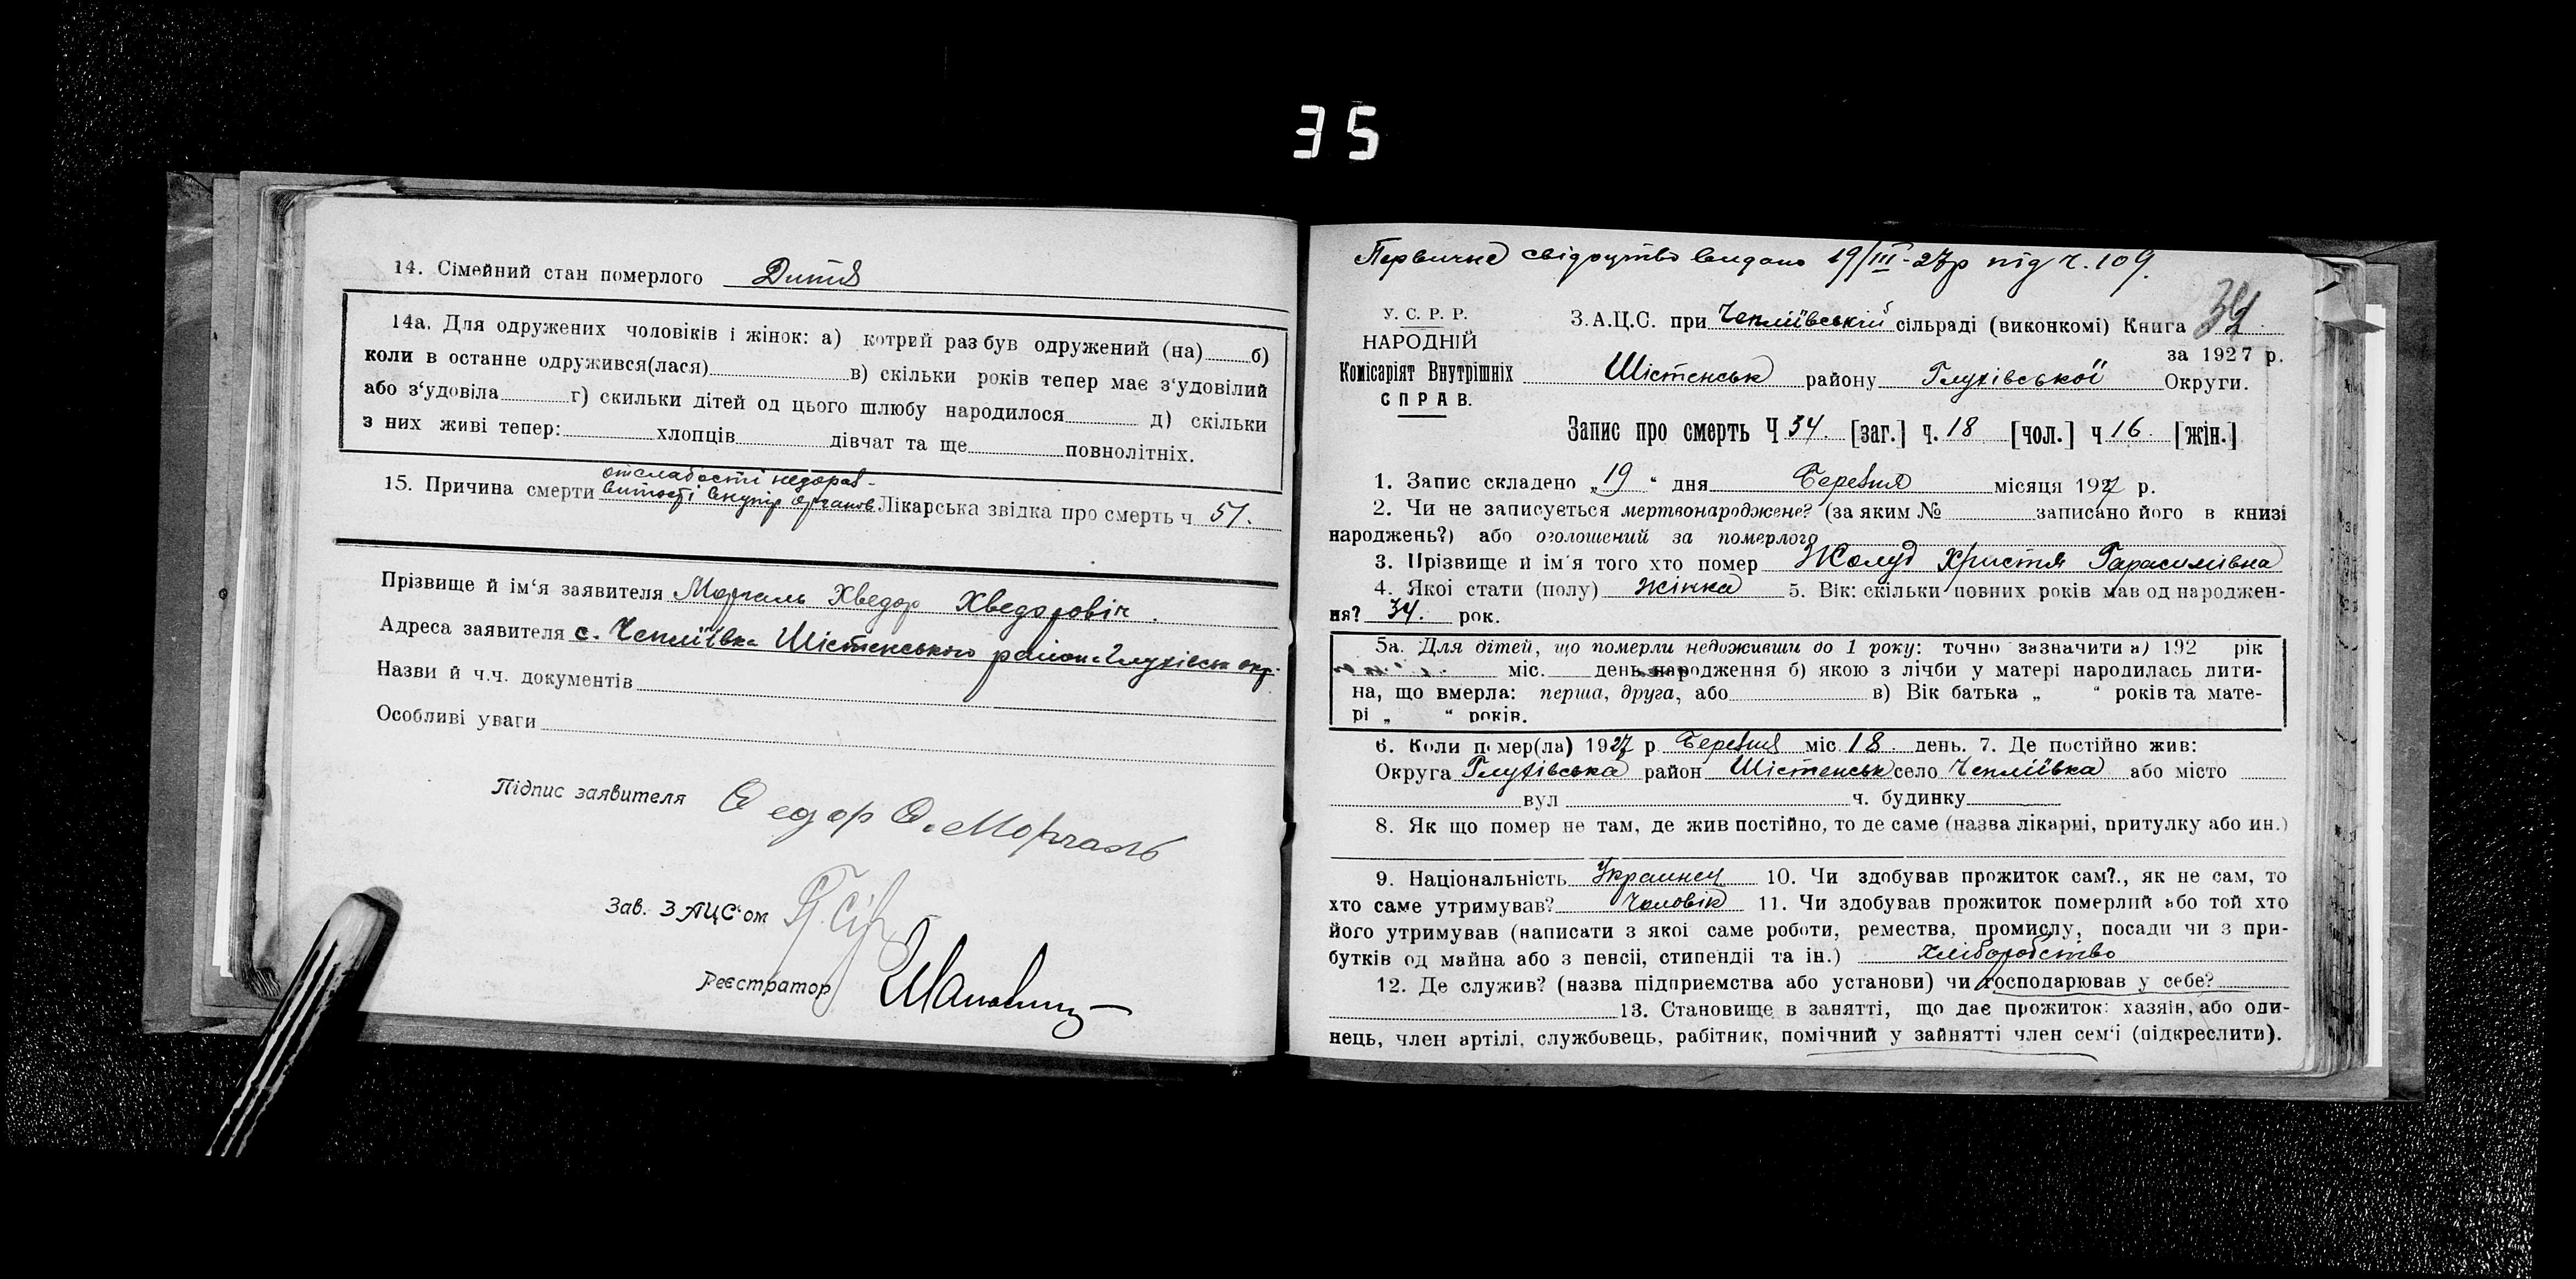 35
14. Сімейний стан померлого Дитя
14а. Для одружених чоловіків і жінок: а) котрий раз був одружений (на) б)
коли в останнє одружився(лася) в) скільки років тепер має з'удовілий
або з'удовіла г) скильки дітей од цього шлюбу народилося д) скільки
з них живі тепер: хлопців дівчат та ще повнолітніх.
отслабості недораз-
15. Причина смерти витості внутр органов Лікарська звідка про смерть ч 51.
Прізвище й ім'я заявителя Моргаль Хведор Хведорович.
Адреса заявителя с. Чепліївка Шістенського район Глухівськ окр.
Назви й ч.ч. документів
Особливі уваги
Підпис заявителя Федор Ф. Моргаль
Зав. ЗАЦС'ом
Реєстратор
Первичне свідоцтво видано 19/III-27р під ч. 109.
34
У. С. Р. Р.
НАРОДНІЙ
Комісаріят Внутрішніх
СПРАВ.
З.А.Ц.С. при Чепліївській сільраді (виконкомі) Книга
за 1927 р.
Шістенськ району Глухівської Округи.
Запис про смерть Ч 34. [заг.] ч. 18 [чол.] ч 16. [жін.]
1. Запис складено „19“ дня Березня місяця 1927 р.
2. Чи не записується мертвонароджене? (за яким № записано його в книзі
народжень?) або оголошений за померлого
3. Прізвище й ім'я того хто помер Жолуд Христя Гарасимівна
4. Якої стати (полу) жінка 5. Вік: скільки повних років мав од народжен-
ня? 34. рок.
5а. Для дітей, що померли недоживши до 1 року: точно зазначити а) 192 рік
міс. день народження б) якою з лічби у матері народилась дити-
на, що вмерла: перша, друга, або в) Вік батька „ “ років та мате-
рі „ “ років.
6. Коли помер(ла) 1927 р. Березня міс. 18 день. 7. Де постійно жив:
Округа Глухівська район Шістенськ село Чепліївка або місто
вул ч. будинку
8. Як що помер не там, де жив постійно, то де саме (назва лікарні, притулку або ин.)
9. Національність Украинец 10. Чи здобував прожиток сам?., як не сам, то
хто саме утримував? Чоловік 11. Чи здобував прожиток померлий або той хто
його утримував (написати з якої саме роботи, ремества, промислу, посади чи з при-
бутків од майна або з пенсії, стипендії та ін.) хліборобство
12. Де служив? (назва підприємства або установи) чи господарював у себе?
13. Становище в занятті, що дає прожиток: хазяін, або оди-
нець, член артілі, службовець, рабітник, помічний у зайнятті член сем'ї (підкреслити).